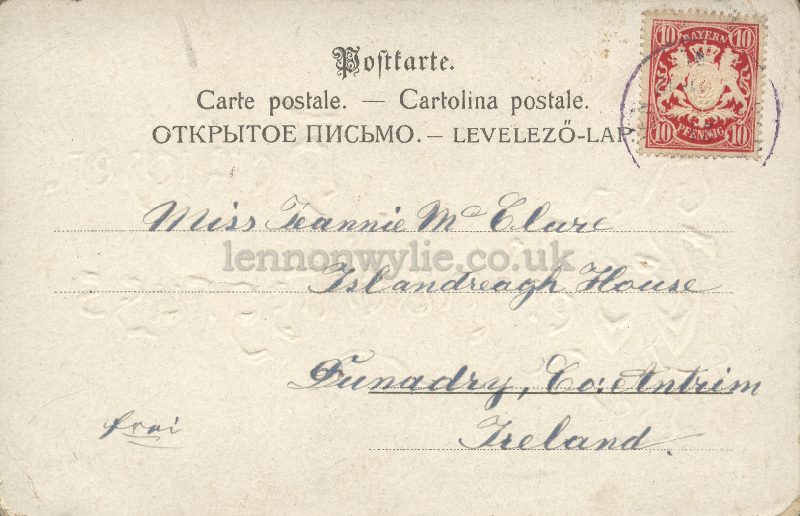 Postkarte.
Carte postale. — Cartolina postale.
ОТКРЫТОЕ ПИСЬМО. — LEVELEZŐ-LAP
10 BAYERN 10
10 PFENNIG 10
Miss Jeannie McClure
lennonwylie.co.uk
Islandreagh House
Dunadry, Co: Antrim
frei
Ireland